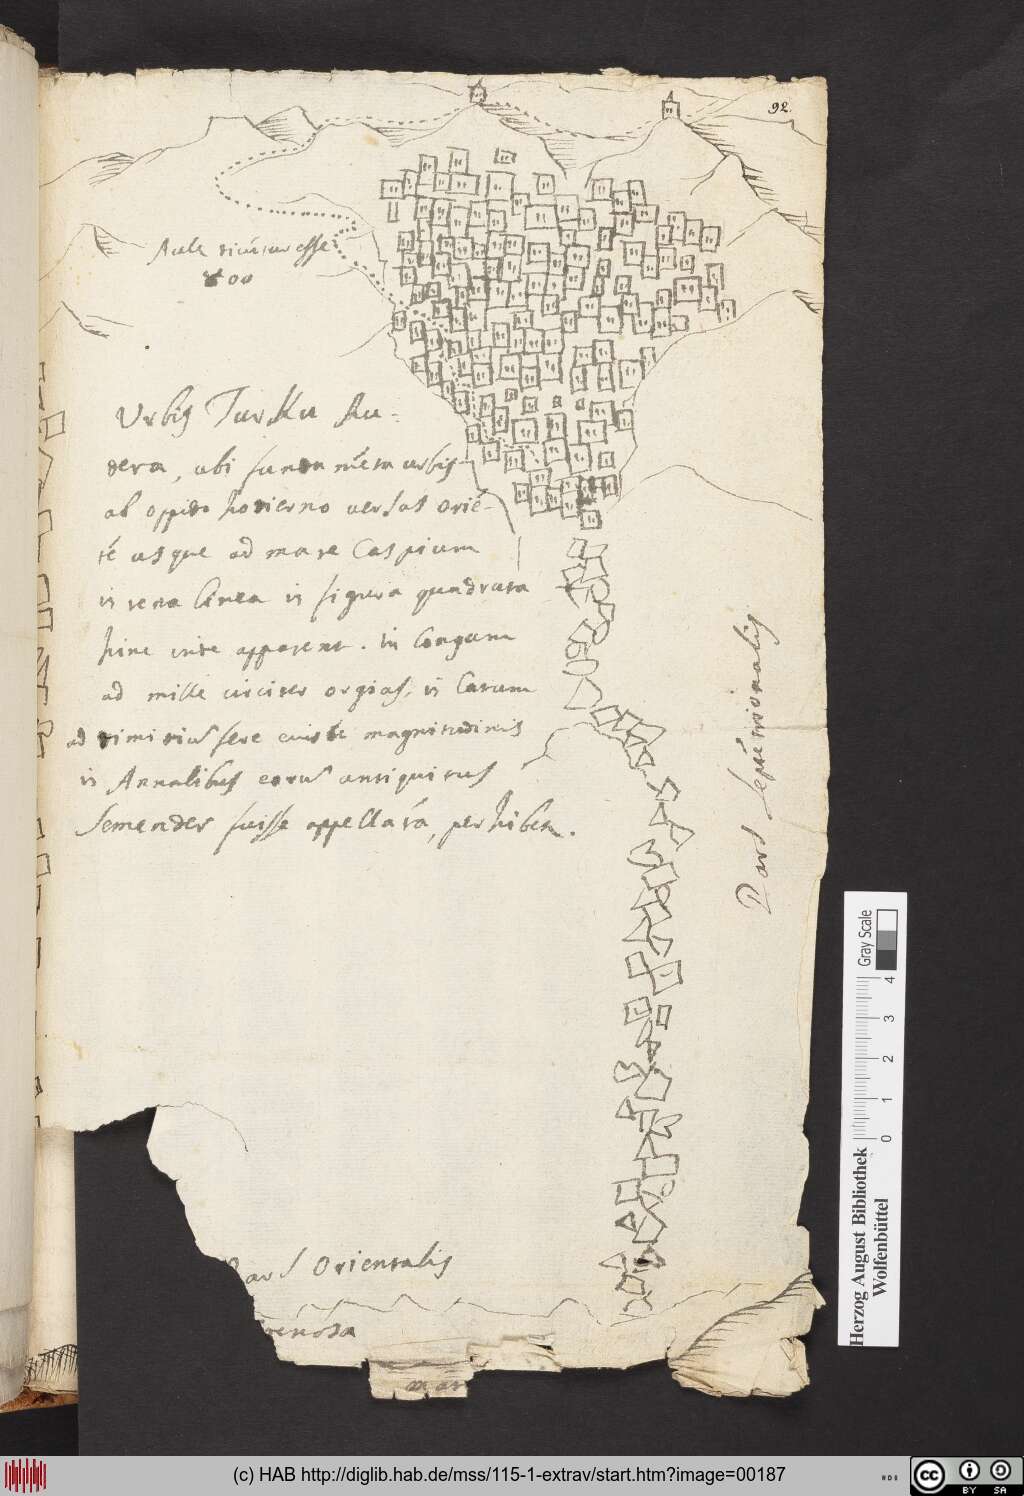 92.
Aulæ dicuntur esse
400
Urbis Tarku Ru-
dera, ubi fundam̄eta urbis
ab oppido hodierno versus Oriē-
tē usque ad mare Caspium
in recta linea in figura quadrata
hinc inde apparent. in longum
ad mille circiter orgias, in latum
ad dimidiū fere
magnitudinis
in Annalibus eorū antiquitus
Semender fuisse appellatā, perhibēt.
Pars Septētrionalis
Pars Orientalis
enosa
mar
Herzog August Bibliothek
Wolfenbüttel
Gray Scale
0 1 2 3 4
(c) HAB http://diglib.hab.de/mss/115-1-extrav/start.htm?image=00187
cc BY SA